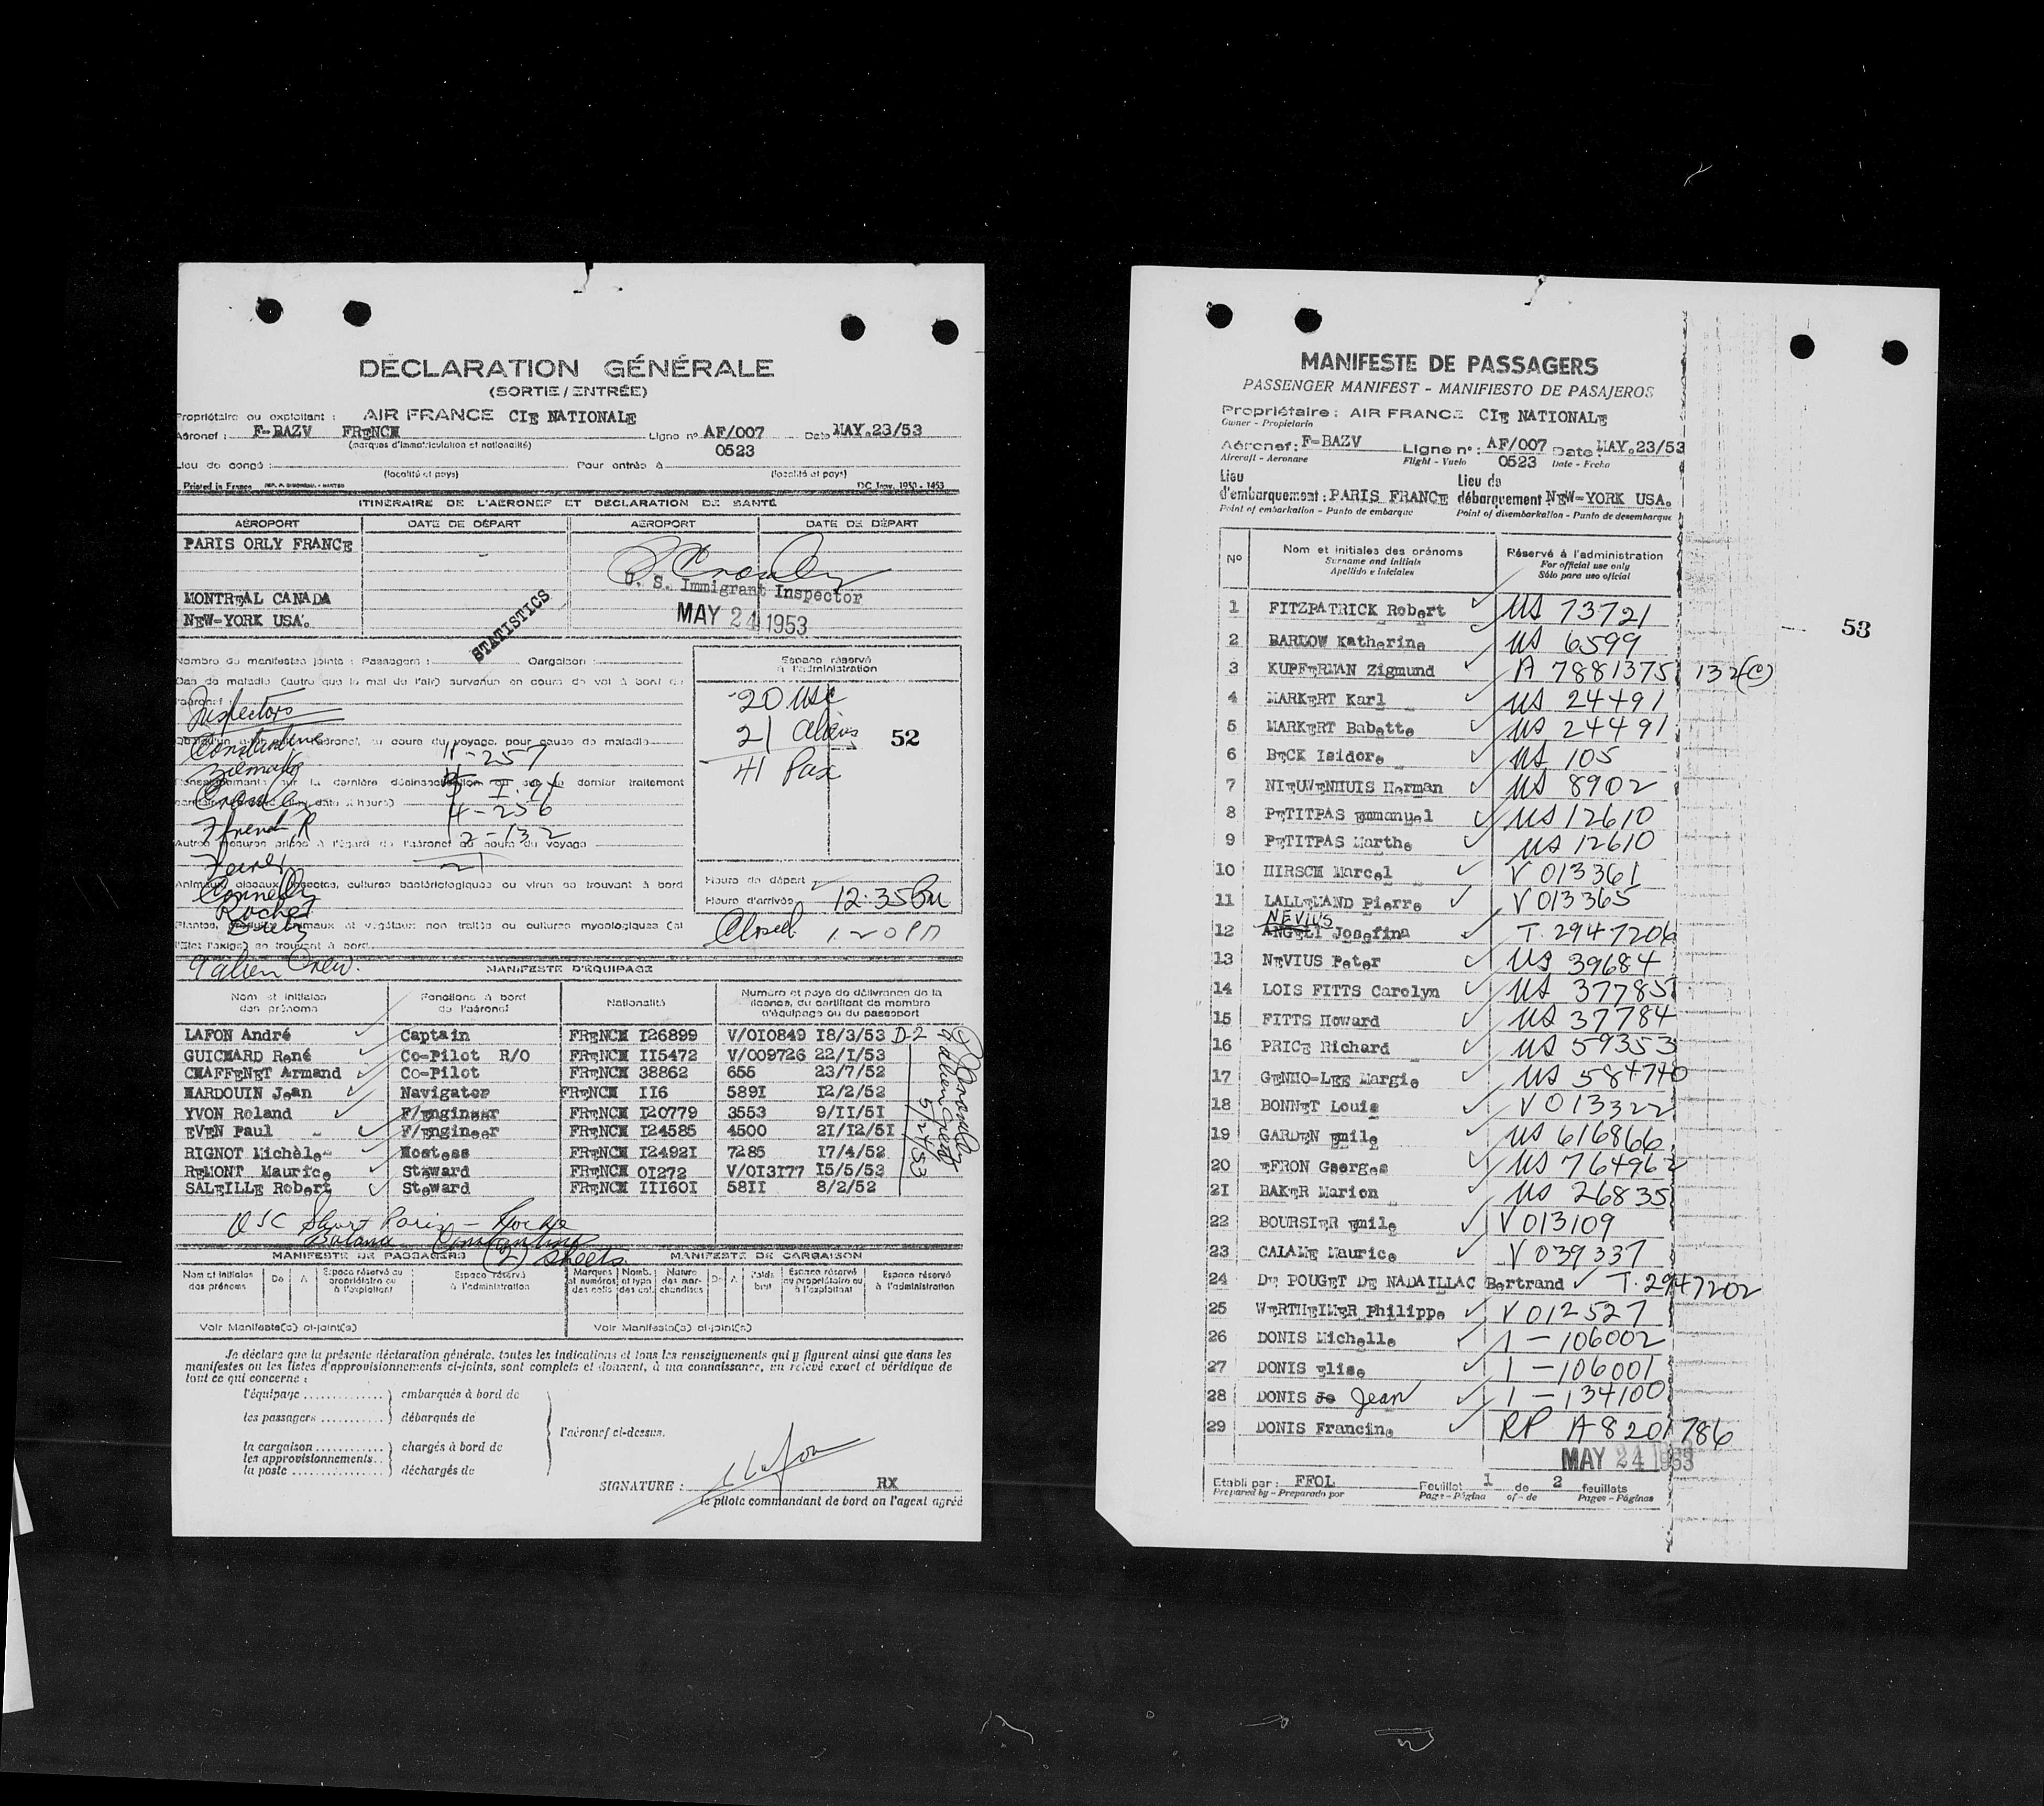 DÉCLARATION GÉNÉRALE
(SORTIE / ENTRÉE)
Propriétaire ou exploitant : AIR FRANCE CIE NATIONALE
Aéronef : F-BAZV FRENCH Ligne n° AF/007 Date MAY.23/53
(marques d'immatriculation et nationalité) 0523
Lieu de congé : Pour entrée à
(localité et pays) (localité et pays)
Printed in France DC Janv. 1950 - 1453
ITINÉRAIRE DE L'AÉRONEF ET DÉCLARATION DE SANTÉ
AÉROPORT DATE DE DÉPART AÉROPORT DATE DE DÉPART
PARIS ORLY FRANCE
U. S. Immigrant Inspector
MONTREAL CANADA
MAY 24 1953
NEW-YORK USA.
STATISTICS
Nombre de manifestes joints : Passagers : Cargaison :
Cas de maladie (autre que le mal de l'air) survenus en cours de vol à bord de
l'aéronef
Inspectors
Constantine 11-257
4-256
2-132
21
Autres mesures prises à l'égard de l'aéronef au cours du voyage
Connell
Roche
Animaux, oiseaux, insectes, cultures bactériologiques ou virus se trouvant à bord
Espace réservé
à l'administration
20 USC
21 Aliens
41 Pax
52
Heure de départ
Heure d'arrivée 12:35 PM
Closed 1:20 PM
9 alien Crew.
MANIFESTE D'ÉQUIPAGE
Nom et initiales des prénoms Fonctions à bord de l'aéronef Nationalité Numéro et pays de délivrance de la licence, du certificat de membre d'équipage ou du passeport
LAFON André Captain FRENCH I26899 V/OI0849 I8/3/53 D-2
GUICHARD René Co-Pilot R/O FRENCH II5472 V/009726 22/I/53
CHAFFENET Armand Co-Pilot FRENCH 38862 655 23/7/52
HARDOUIN Jean Navigator FRENCH II6 589I I2/2/52
YVON Roland F/Engineer FRENCH I20779 3553 9/II/5I
EVEN Paul F/Engineer FRENCH I24585 4500 2I/I2/5I
RIGNOT Michèle Hostess FRENCH I2492I 7285 I7/4/52
REMONT Maurice Steward FRENCH OI272 V/OI3I77 I5/5/53
SALEILLE Robert Steward FRENCH III60I 58II 8/2/52
9 alien Crew
5/24/53
USC Short Paris - Roche
Constantine
(2) sheets
MANIFESTE DE PASSAGERS MANIFESTE DE CARGAISON
Nom et initiales des prénoms De A Espace réservé au propriétaire ou à l'exploitant Espace réservé à l'administration Marques et numéros des colis Nomb. et type des col. Nature des marchandises De A Poids brut Espace réservé au propriétaire ou à l'exploitant Espace réservé à l'administration
Voir Manifeste(s) ci-joint(s) Voir Manifeste(s) ci-joint(s)
Je déclare que la présente déclaration générale, toutes les indications et tous les renseignements qui y figurent ainsi que dans les
manifestes ou les listes d'approvisionnements ci-joints, sont complets et donnent, à ma connaissance, un relevé exact et véridique de
tout ce qui concerne :
l'équipage ............ embarqués à bord de
les passagers ........... débarqués de
l'aéronef ci-dessus.
la cargaison ............ chargés à bord de
les approvisionnements..
la poste ................ déchargés de
SIGNATURE : RX
le pilote commandant de bord ou l'agent agréé
MANIFESTE DE PASSAGERS
PASSENGER MANIFEST - MANIFIESTO DE PASAJEROS
Propriétaire : AIR FRANCE CIE NATIONALE
Owner - Propietario
Aéronef : F-BAZV Ligne n° : AF/007 Date : MAY.23/53
Aircraft - Aeronave Flight - Vuelo 0523 Date - Fecha
Lieu d'embarquement : PARIS FRANCE Lieu de débarquement NEW-YORK USA.
Point of embarkation - Punto de embarque Point of disembarkation - Punto de desembarque
N° Nom et initiales des prénoms Réservé à l'administration
Surname and initials For official use only
Apellido e iniciales Sólo para uso oficial
1 FITZPATRICK Robert US 73721
2 BARLOW Katherine US 6599
3 KUPFERMAN Zigmund A 7881375 132(C)
4 MARKERT Karl US 24491
5 MARKERT Babette US 24491
6 BECK Isidore US 105
7 NIEUWENHUIS Herman US 8902
8 PETITPAS Emmanuel US 12610
9 PETITPAS Marthe US 12610
10 HIRSCH Marcel V 013361
11 LALLEMAND Pierre V 013365
NEVIUS
12 ANGELI Josefina T. 2947206
13 NEVIUS Peter US 39684
14 LOIS FITTS Carolyn US 37785
15 FITTS Howard US 37784
16 PRICE Richard US 59353
17 GENHO-LEE Margie US 584740
18 BONNET Louis V 013322
19 GARDEN Emile US 616866
20 EFRON Georges US 764962
2I BAKER Marion US 26835
22 BOURSIER Emile V 013109
23 CALAME Maurice V 039337
24 DE POUGET DE NADAILLAC Bertrand T. 2947202
25 WERTHEIMER Philippe V 012527
26 DONIS Michelle 1-106002
27 DONIS Elise 1-106001
28 DONIS Jo Jean 1-134100
29 DONIS Francine RP A8201786
MAY 24 1953
Etabli par : FFOL Feuillet 1 de 2 feuillets
Prepared by - Preparado por Page - Página of - de Pages - Páginas
53